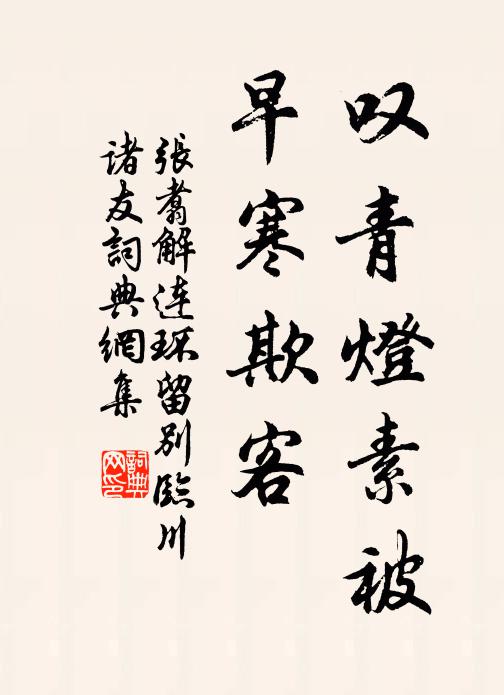 叹青燈素被
早寒欺客
張翥解连环留別臨川
诸友詞典網集
詞典网印